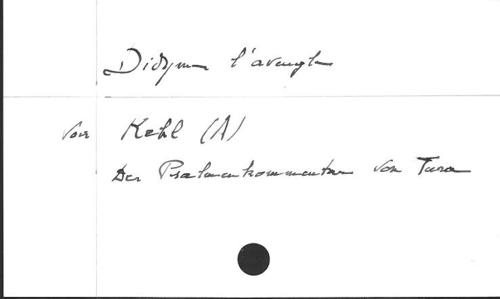 Didyme l'aveugle
voir Kehl (A)
Der Psalmenkommentar von Tura